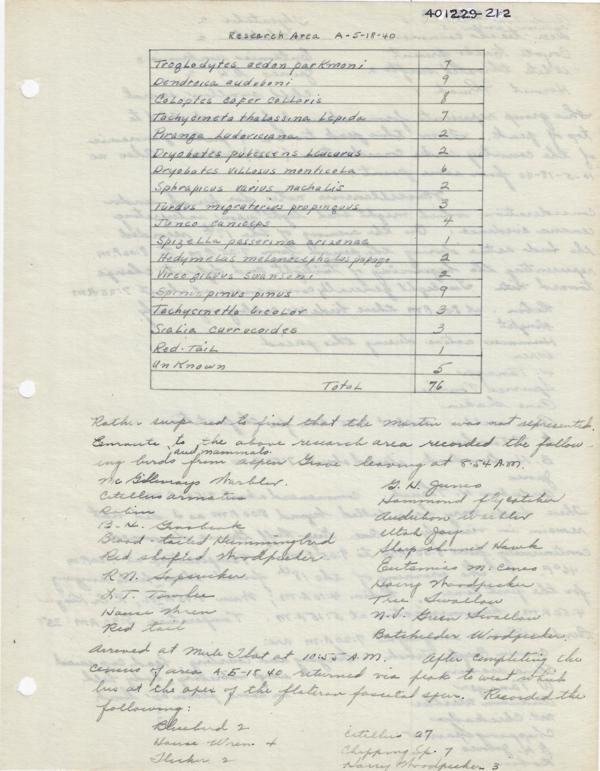 401229-212
Research Area A-5-18-40
Troglodytes aedon parkmoni 7
Dendroica auduboni 9
Coloptes cafer collaris 8
Tachycineta thalassina lepida 7
Piranga ludoviciana 2
Dryobates pubescens leucurus 2
Dryobates villosus monticola 6
Sphrapicus varius nuchalis 2
Turdus migratorius propinquus 3
Junco caniceps 4
Spizella passerina arizonae 1
Hedymeles melanocephalus papago 2
Vireo gilvus swansoni 2
Spinus pinus pinus 9
Tachycinetta bicolor 3
Sialia currucoides 3
Red-Tail 1
Unknown 5
Total 76
Rather surprised to find that the Martin was not represented.
Enroute to the above research area recorded the follow-
ing birds and mammals from aspen Grove leaving at 8:54 A.M.
McGillivrays Warbler. G. H. Junco
Citellus armatus Hammond flycatcher
Robin Audubon Warbler
B. H. Grosbeak Utah Jay
Broad-tailed Hummingbird Sharp shinned Hawk
Red shafted Woodpecker Eutamias m. 
R. N. Sapsucker Hairy Woodpecker
G. T. Towhee Tree Swallow
House Wren N.V. Green Swallow
Red tail Batchelder Woodpecker.
Arrived at Mule Flat at 10:45 A.M. After completing the
census of area A-5-18-40 returned via peak to west which
lies at the apex of the flatiron faceted spur. Recorded the
following:
Bluebird 2 Citellus a 7
House Wren 4 Chipping Sp. 7
Flicker 2 Harry Woodpecker 3